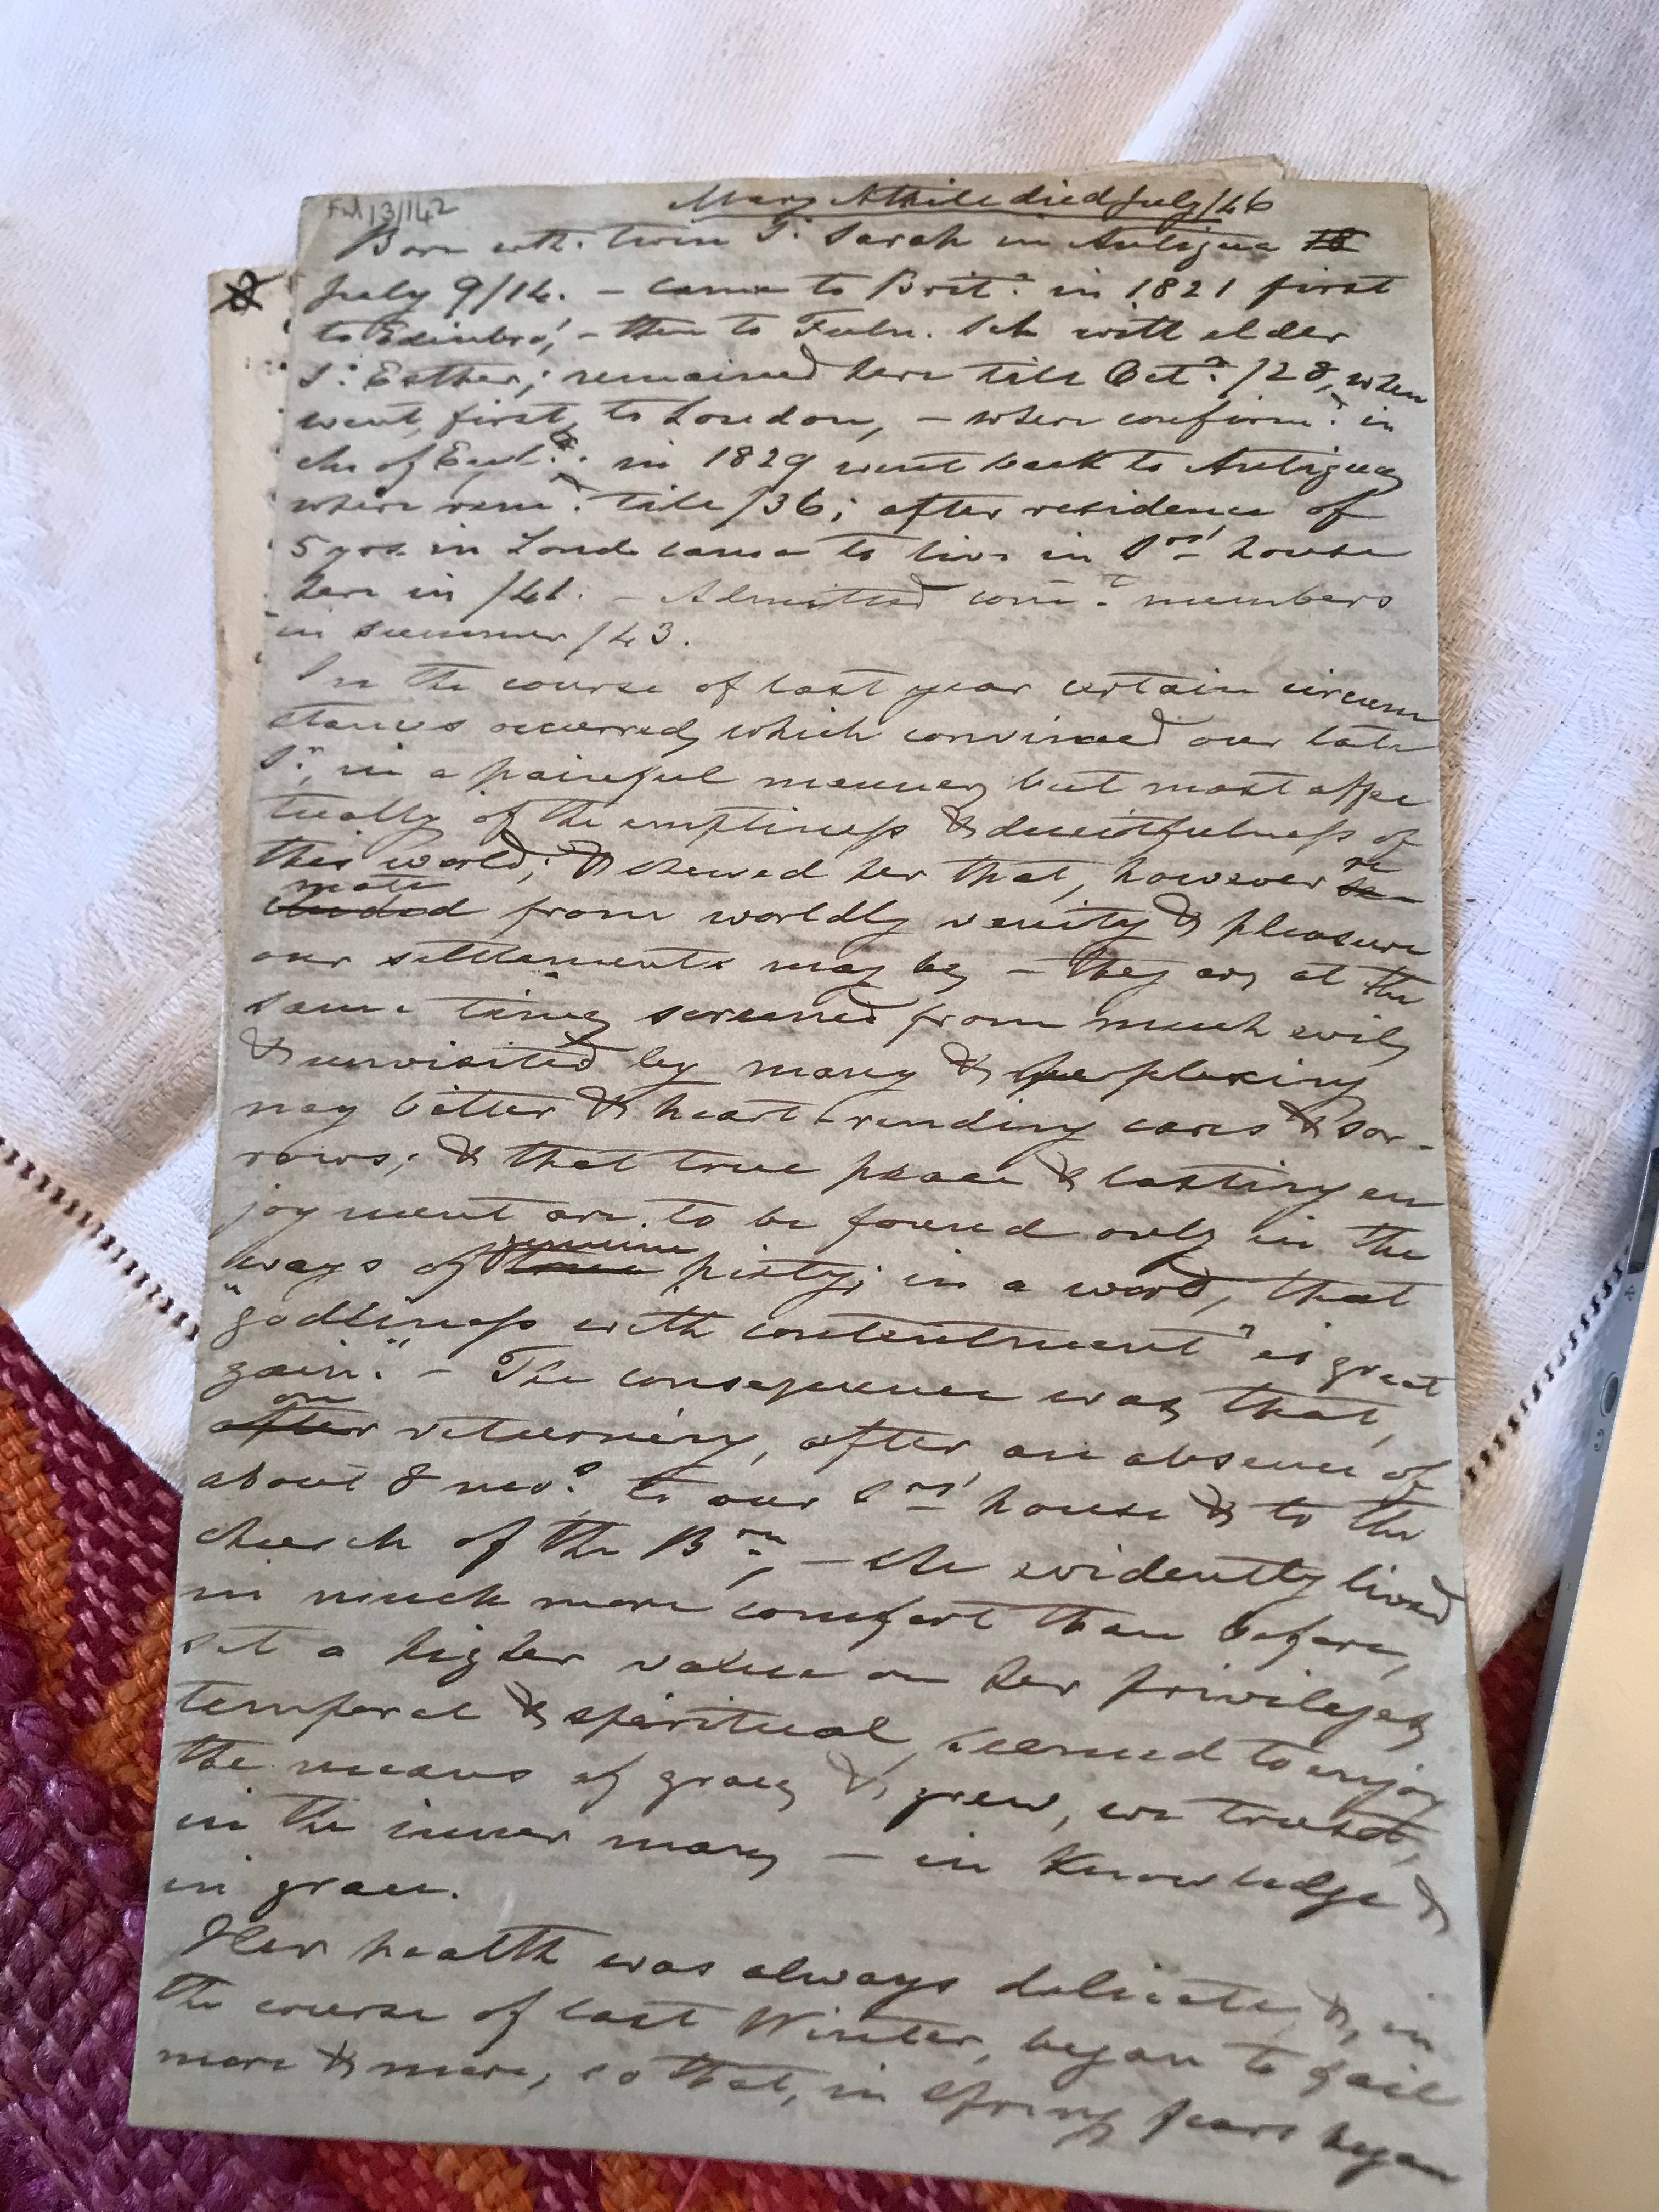 FM 13/142
Mary Athill died July/46
Born wth. twin Sr. Sarah in Antigua 18
July 9/14. – came to Britn. in 1821 first
to Edinbro', – then to Fuln. Sch with elder
Sr. Esther; remained here till Octr. /28, when
went, first, to London, – where confirmd. in
ch. of Engld. in 1829 went back to Antigua
where remd. till /36; after residence of
5 yrs. in Lond. came to live in Srs' house
here in /41. – Admitted comt. members
in summer /43.
In the course of last year certain circum
stances occurred, which convinced our late
Sr., in a painful manner, but most effec
tually of the emptiness & deceitfulness of
this world; & shewed her that, however se re
cluded mote from worldly vanity & pleasure
our settlements may be, – they are, at the
same time, screened from much evil,
& unvisited by many & perplexing
nay bitter & heart-rending cares & sor-
rows; & that true peace & lasting en
joyment are to be found only in the
ways of true genuine piety; in a word, that
"godliness with contentment" is great
gain." – The consequence was, that,
after on returning, after an absence of
about 8 mos. to our Srs' house & to the
church of the Brn., – she evidently lived
in much more comfort than before,
set a higher value on her privileges,
temporal & spiritual, seemed to enjoy
the means of grace, & grew, we trust,
in the inner man, – in knowledge &
in grace.
Her health was always delicate &, in
the course of last Winter, began to fail
more & more, so that, in Spring fears began